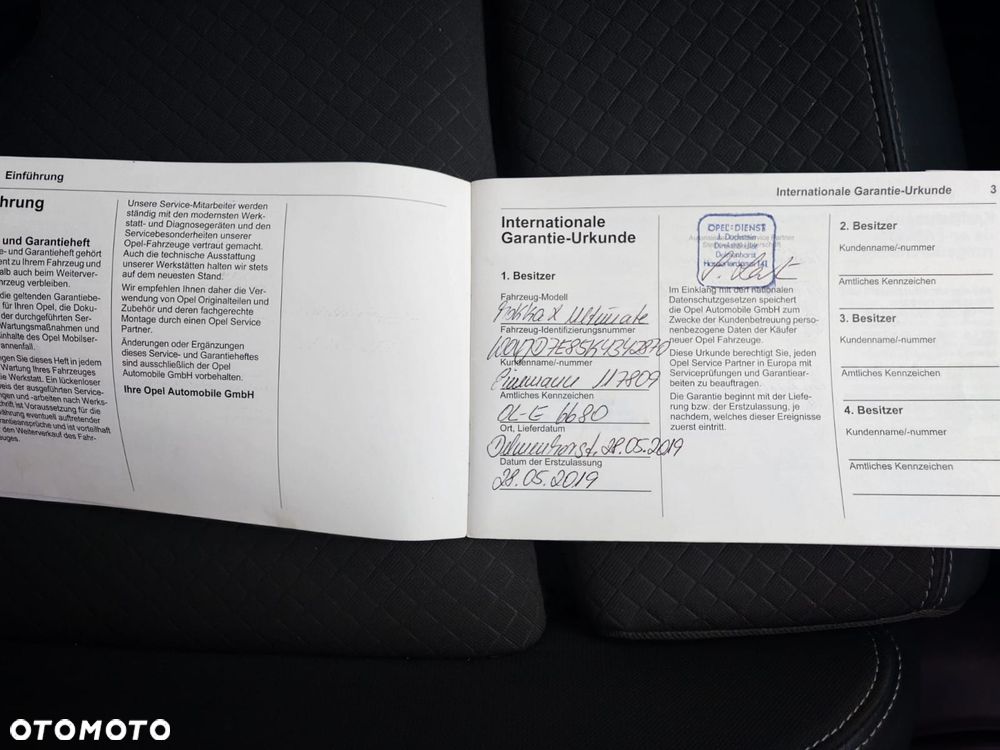 Einführung
hrung
und Garantieheft
e- und Garantieheft gehört
ent zu Ihrem Fahrzeug und
alb auch beim Weiterver-
hrzeug verbleiben.
die geltenden Garantiebe-
für Ihren Opel, die Doku-
der durchgeführten Ser-
Wartungsmaßnahmen und
inhalte des Opel Mobilser-
annenfall.
gen Sie dieses Heft in jedem
Wartung Ihres Fahrzeuges
ie Werkstatt. Ein lückenloser
weis der ausgeführten Service-
ngen und -arbeiten nach Werks-
chrift ist Voraussetzung für die
währung eventuell auftretender
rantieansprüche und ist vorteilhaft
den Weiterverkauf des Fahr-
euges.
Unsere Service-Mitarbeiter werden
ständig mit den modernsten Werk-
statt- und Diagnosegeräten und den
Servicebesonderheiten unserer
Opel-Fahrzeuge vertraut gemacht.
Auch die technische Ausstattung
unserer Werkstätten halten wir stets
auf dem neuesten Stand.
Wir empfehlen Ihnen daher die Ver-
wendung von Opel Originalteilen und
Zubehör und deren fachgerechte
Montage durch einen Opel Service
Partner.
Änderungen oder Ergänzungen
dieses Service- und Garantieheftes
sind ausschließlich der Opel
Automobile GmbH vorbehalten.
Ihre Opel Automobile GmbH
Internationale Garantie-Urkunde 3
Internationale
Garantie-Urkunde
1. Besitzer
Fahrzeug-Modell
Mokka X Ultimate
Fahrzeug-Identifizierungsnummer
Kundenname/-nummer
117809
Amtliches Kennzeichen
OL-E 6680
Ort, Lieferdatum
Delmenhorst, 28.05.2019
Datum der Erstzulassung
28.05.2019
OPEL-DIENST
Delmenhorst
Im Einklang mit den nationalen
Datenschutzgesetzen speichert
die Opel Automobile GmbH zum
Zwecke der Kundenbetreuung perso-
nenbezogene Daten der Käufer
neuer Opel Fahrzeuge.
Diese Urkunde berechtigt Sie, jeden
Opel Service Partner in Europa mit
Serviceprüfungen und Garantiear-
beiten zu beauftragen.
Die Garantie beginnt mit der Liefe-
rung bzw. der Erstzulassung, je
nachdem, welches dieser Ereignisse
zuerst eintritt.
2. Besitzer
Kundenname/-nummer
Amtliches Kennzeichen
3. Besitzer
Kundenname/-nummer
Amtliches Kennzeichen
4. Besitzer
Kundenname/-nummer
Amtliches Kennzeichen
OTOMOTO